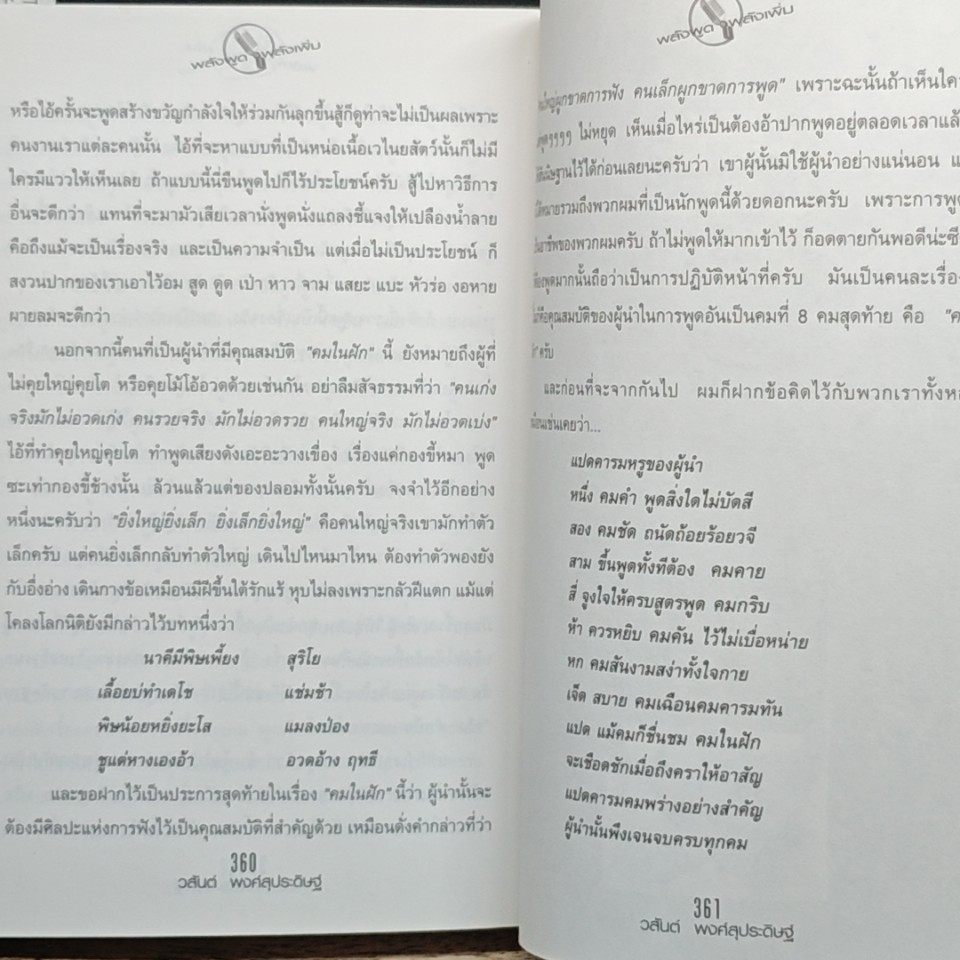 พลังพูด พลังเพิ่ม
หรือไอ้ครั้นจะพูดสร้างขวัญกำลังใจให้ร่วมกันลุกขึ้นสู้ก็ดูท่าจะไม่เป็นผลเพราะ
คนงานเราแต่ละคนนั้น ไอ้ที่จะหาแบบที่เป็นหน่อเนื้อเวไนยสัตว์นั้นก็ไม่มี
ใครมีแววให้เห็นเลย ถ้าแบบนี้นี่ขืนพูดไปก็ไร้ประโยชน์ครับ สู้ไปหาวิธีการ
อื่นจะดีกว่า แทนที่จะมามัวเสียเวลานั่งพูดนั่งแถลงชี้แจงให้เปลืองน้ำลาย
คือถึงแม้จะเป็นเรื่องจริง และเป็นความจำเป็น แต่เมื่อไม่เป็นประโยชน์ ก็
สงวนปากของเราเอาไว้อม สูด ดูด เป่า หาว จาม แสยะ แบะ หัวร่อ งอหาย
ผายลมจะดีกว่า
นอกจากนี้คนที่เป็นผู้นำที่มีคุณสมบัติ "คมในฝัก" นี้ ยังหมายถึงผู้ที่
ไม่คุยใหญ่คุยโต หรือคุยโม้โอ้อวดด้วยเช่นกัน อย่าลืมสัจธรรมที่ว่า "คนเก่ง
จริงมักไม่อวดเก่ง คนรวยจริง มักไม่อวดรวย คนใหญ่จริง มักไม่อวดเบ่ง"
ไอ้ที่ทำคุยใหญ่คุยโต ทำพูดเสียงดังเอะอะวางเขื่อง เรื่องแค่กองขี้หมา พูด
ซะเท่ากองขี้ช้างนั้น ล้วนแล้วแต่ของปลอมทั้งนั้นครับ จงจำไว้อีกอย่าง
หนึ่งนะครับว่า "ยิ่งใหญ่ยิ่งเล็ก ยิ่งเล็กยิ่งใหญ่" คือคนใหญ่จริงเขามักทำตัว
เล็กครับ แต่คนยิ่งเล็กกลับทำตัวใหญ่ เดินไปไหนมาไหน ต้องทำตัวพองยัง
กับอึ่งอ่าง เดินกางข้อเหมือนมีฝีขึ้นใต้รักแร้ หุบไม่ลงเพราะกลัวฝีแตก แม้แต่
โคลงโลกนิติยังมีกล่าวไว้บทหนึ่งว่า
นาคีมีพิษเพี้ยง สุริโย
เลื้อยบ่ทำเดโช แช่มช้า
พิษน้อยหยิ่งยะโส แมลงป่อง
ชูแต่หางเองอ้า อวดอ้าง ฤทธี
และขอฝากไว้เป็นประการสุดท้ายในเรื่อง "คมในฝัก" นี้ว่า ผู้นำนั้นจะ
ต้องมีศิลปะแห่งการฟังไว้เป็นคุณสมบัติที่สำคัญด้วย เหมือนดั่งคำกล่าวที่ว่า
360
วสันต์ พงศ์สุประดิษฐ์
พลังพูด พลังเพิ่ม
ผูกขาดการฟัง คนเล็กผูกขาดการพูด" เพราะฉะนั้นถ้าเห็นใคร
ๆๆๆๆ ไม่หยุด เห็นเมื่อไหร่เป็นต้องอ้าปากพูดอยู่ตลอดเวลาแล้ว
ไว้ได้ก่อนเลยนะครับว่า เขาผู้นั้นมิใช่ผู้นำอย่างแน่นอน
รวมถึงพวกผมที่เป็นนักพูดนี้ด้วยดอกนะครับ เพราะการพูด
ของพวกผมครับ ถ้าไม่พูดให้มากเข้าไว้ ก็อดตายกันพอดีน่ะซี
พูดมากนั้นถือว่าเป็นการปฏิบัติหน้าที่ครับ มันเป็นคนละเรื่อง
คุณสมบัติของผู้นำในการพูดอันเป็นคมที่ 8 คมสุดท้าย คือ
ครับ
และก่อนที่จะจากกันไป ผมก็ฝากข้อคิดไว้กับพวกเราทั้ง
เช่นเคยว่า...
แปดคารมหรูของผู้นำ
หนึ่ง คมคำ พูดสิ่งใดไม่บัดสี
สอง คมชัด ถนัดถ้อยร้อยวจี
สาม ขึ้นพูดทั้งทีต้อง คมคาย
สี่ จูงใจให้ครบสูตรพูด คมกริบ
ห้า ควรหยิบ คมคัน ไว้ไม่เบื่อหน่าย
หก คมสันงามสง่าทั้งใจกาย
เจ็ด สบาย คมเฉือนคมคารมทัน
แปด แม้คมก็ชื่นชม คมในฝัก
จะเชือดชักเมื่อถึงคราให้อาสัญ
แปดคารมคมพร่างอย่างสำคัญ
ผู้นำนั้นพึงเจนจบครบทุกคม
361
วสันต์ พงศ์สุประดิษฐ์